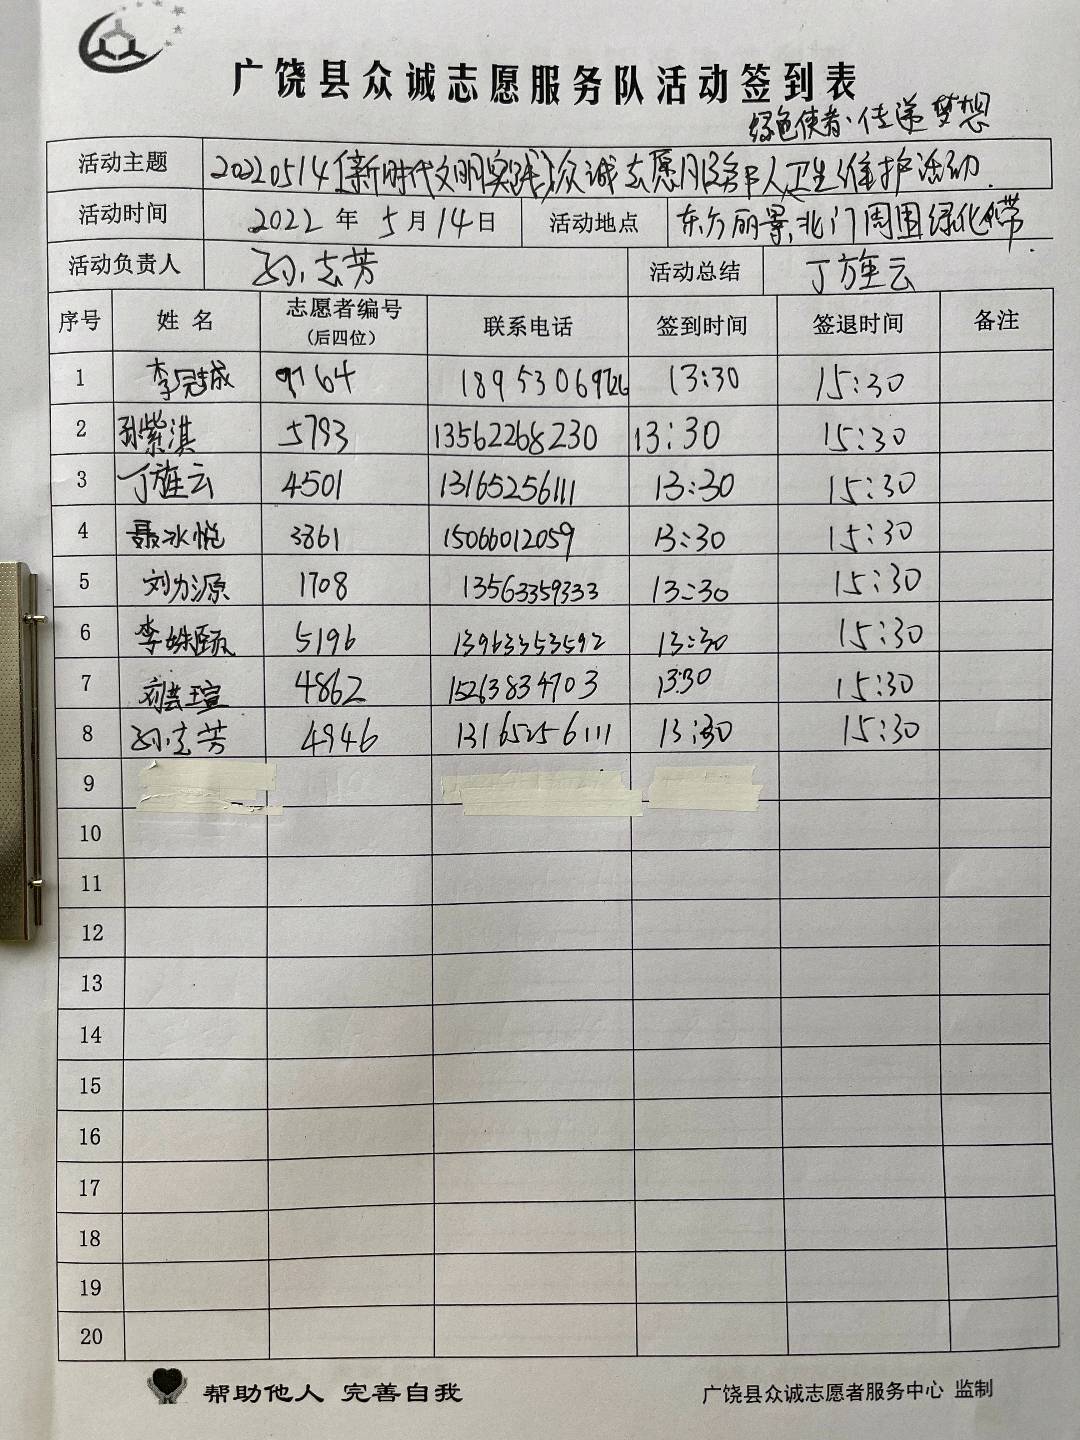 广饶县众诚志愿服务队活动签到表
绿色使者·传递梦想
活动主题 20220514[新时代文明实践]众诚志愿服务队人卫生维护活动.
活动时间 2022 年 5 月 14 日 活动地点 东方丽景,北门周围绿化带.
活动负责人 孙志芳 活动总结 丁旌云
序号 姓 名 志愿者编号 (后四位) 联系电话 签到时间 签退时间 备注
1 李冠城 9764 13:30 15:30
2 孙紫淇 5793 13562268230 13:30 15:30
3 丁旌云 4501 13165256111 13:30 15:30
4 聂冰悦 3861 15066012059 13:30 15:30
5 刘力源 1708 13563359333 13:30 15:30
6 李姝颐 5196 13963353592 13:30 15:30
7 4862 15263834703 13:30 15:30
8 孙志芳 4946 13165256111 13:30 15:30
9
10
11
12
13
14
15
16
17
18
19
20
帮助他人 完善自我
广饶县众诚志愿者服务中心 监制